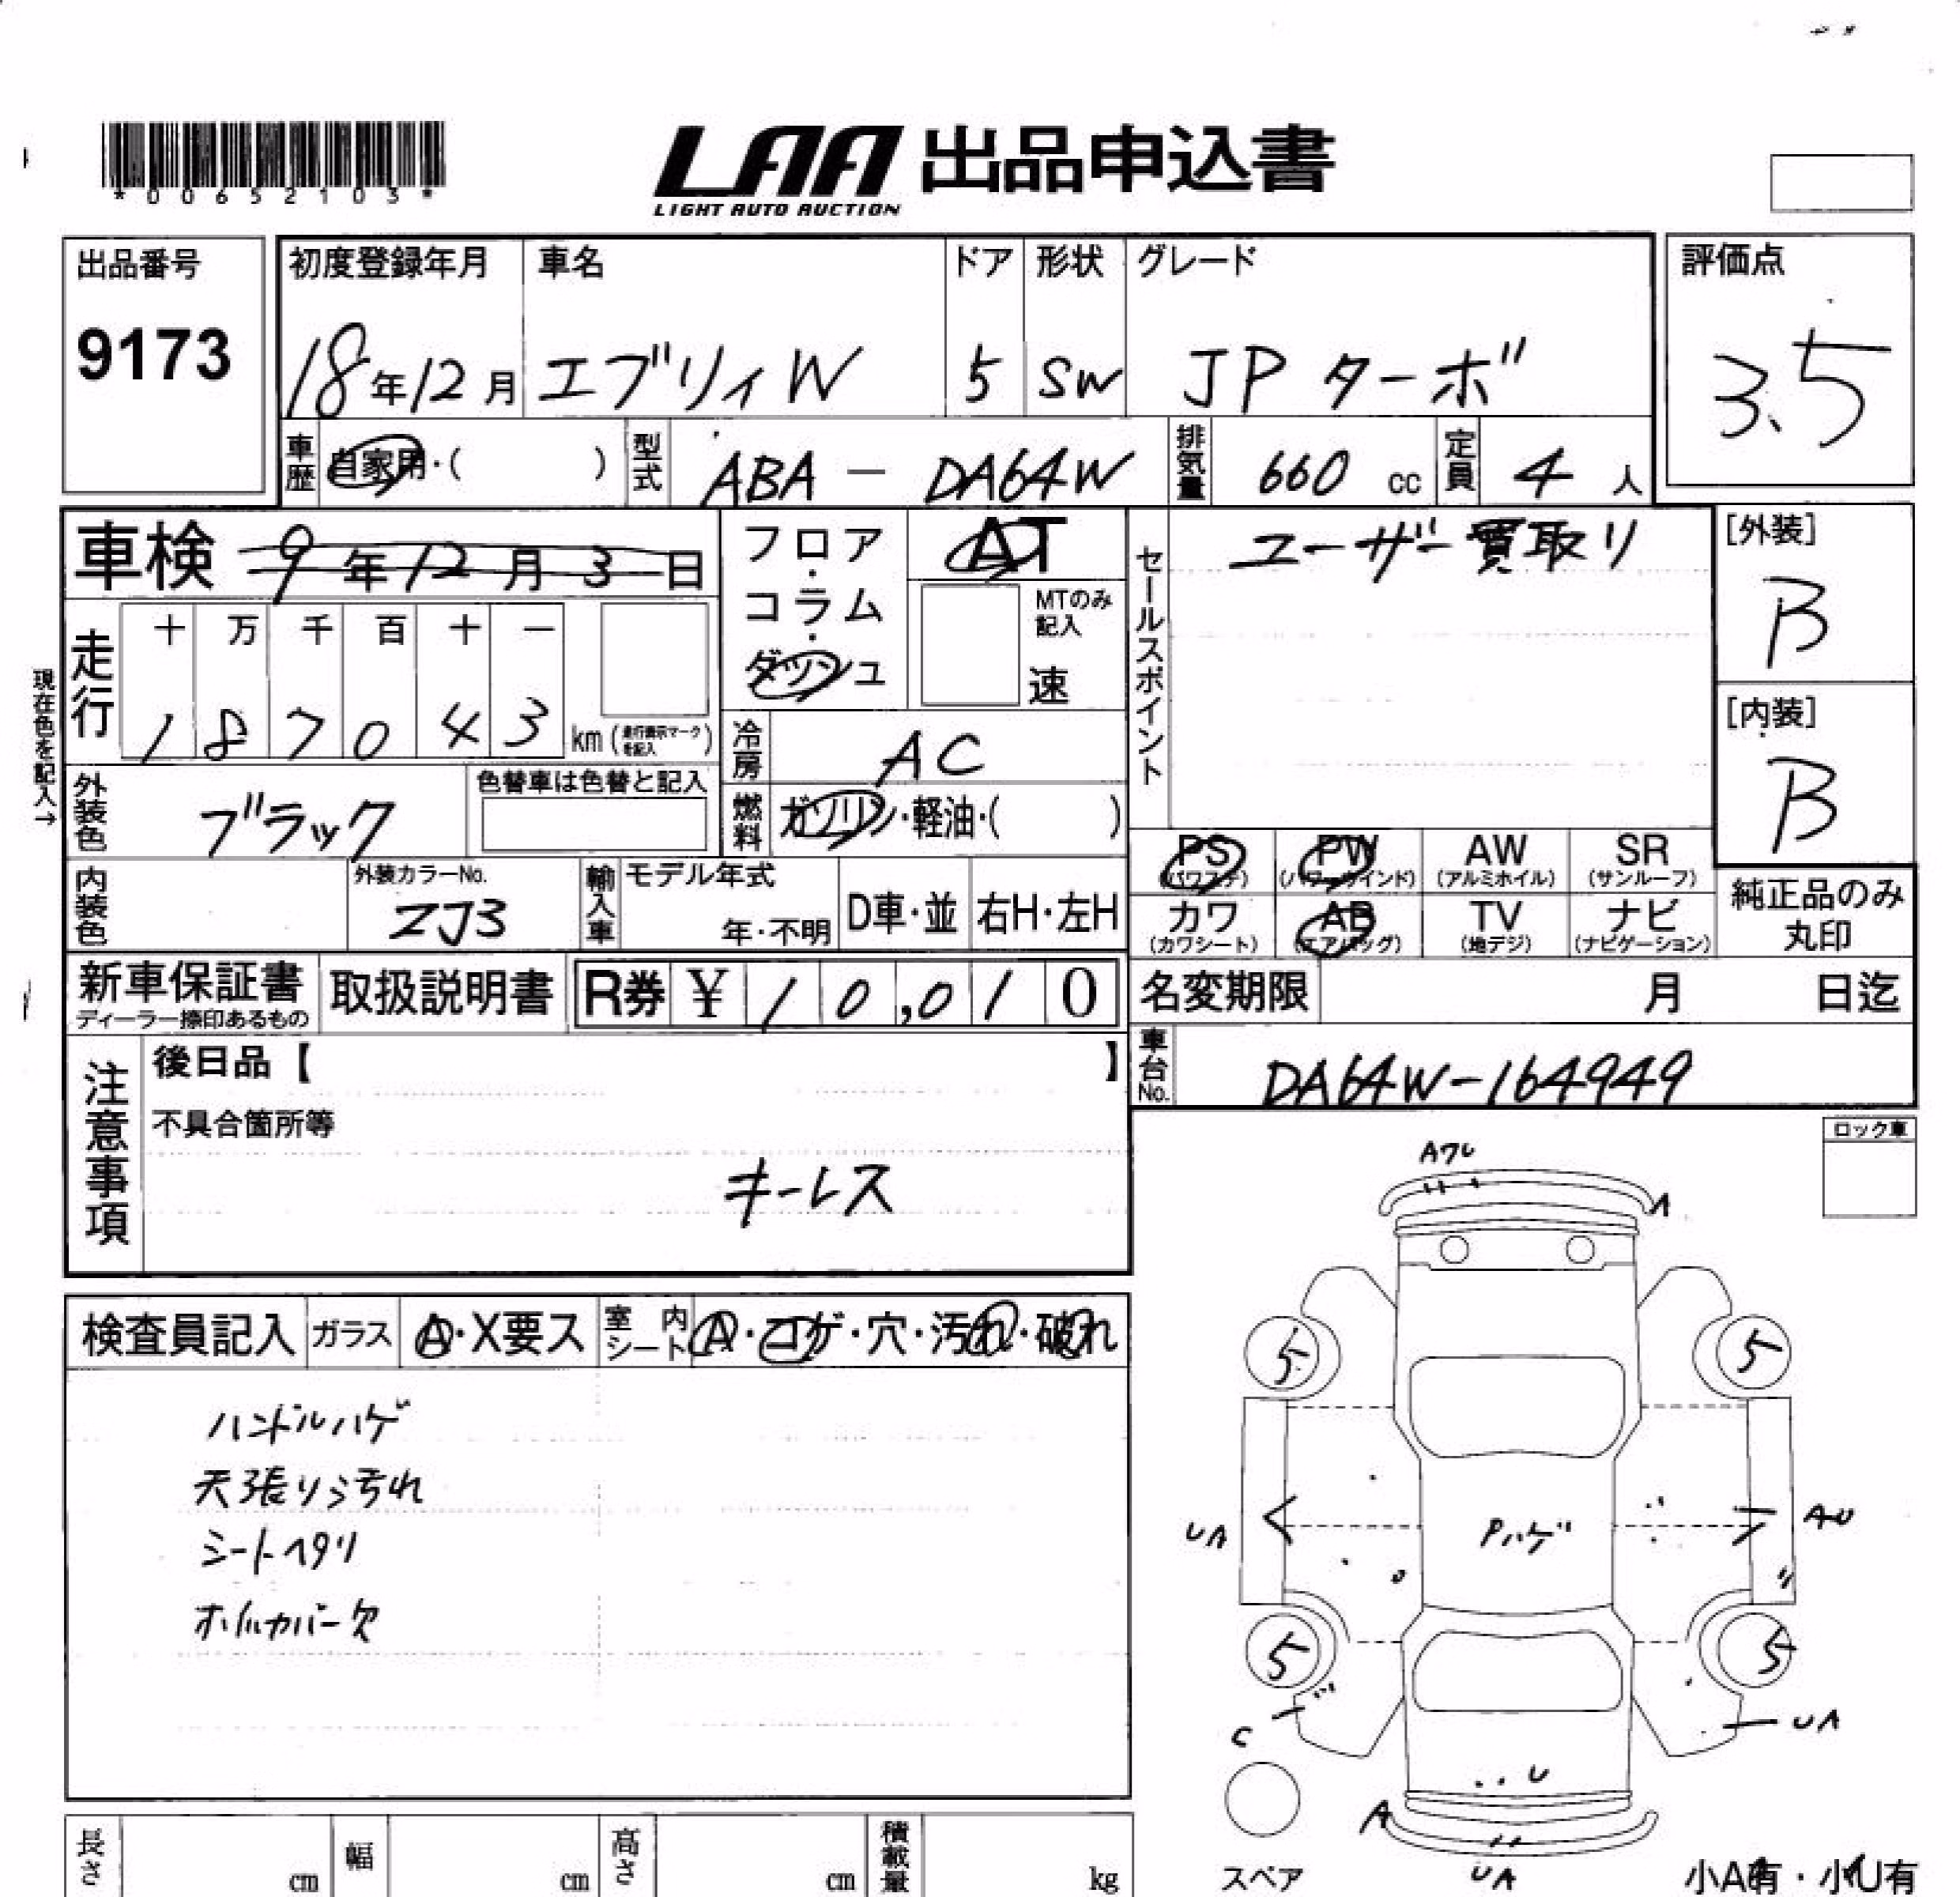 *00652103*
LAA 出品申込書
LIGHT AUTO AUCTION
出品番号
9173
初度登録年月
18年12月
車名
エブリィW
ドア
5
形状
SW
グレード
JP ターボ
評価点
3.5
車歴 自家用・( )
型式 ABA - DA64W
排気量 660 cc
定員 4 人
車検 9年12月3日
フロア・コラム・ダッシュ
AT
MTのみ記入
速
セールスポイント
ユーザー買取り
[外装]
B
[内装]
B
現在色を記入→
走行
十 万 千 百 十 一
1 8 7 0 4 3 km (走行表示マークを記入)
冷房 AC
外装色 ブラック
色替車は色替と記入
燃料 ガソリン・軽油・( )
PS (パワステ)
PW (パワーウインド)
AW (アルミホイル)
SR (サンルーフ)
内装色
外装カラーNo.
ZJ3
輸入車 モデル年式
年・不明
D車・並
右H・左H
カワ (カワシート)
AB (エアバッグ)
TV (地デジ)
ナビ (ナビゲーション)
純正品のみ丸印
新車保証書
ディーラー捺印あるもの
取扱説明書
R券 ¥ 10,010
名変期限 月 日迄
車台No. DA64W-164949
注意事項
後日品【 】
不具合箇所等
キーレス
ロック車
検査員記入
ガラス A・X要ス
室内シート A・コゲ・穴・汚れ・破れ
ハンドルハゲ
天張り汚れ
シートヘタリ
ホイルカバー欠
A
5
5
UA
Pハゲ
AU
5
5
C
UA
U
A
UA
スペア
小A有・小U有
長さ cm
幅 cm
高さ cm
積載量 kg